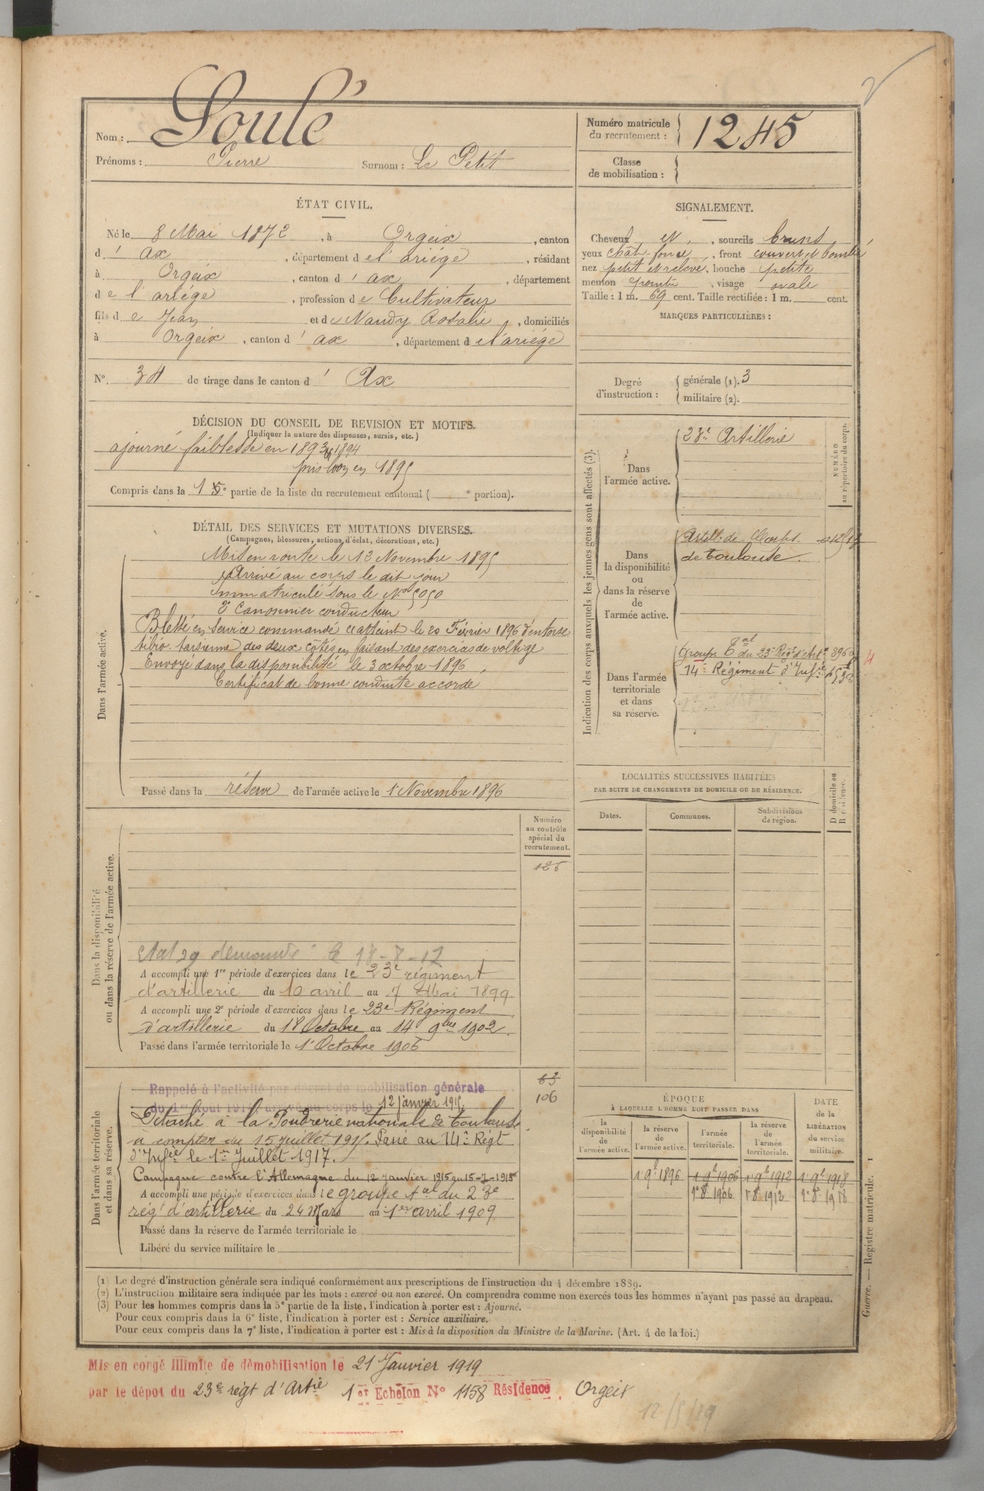 Nom : Soulé
Prénoms : Pierre Surnom : Le Petit
Numéro matricule du recrutement : 1245
Classe de mobilisation :
ÉTAT CIVIL.
Né le 8 Mai 1872, à Orgeix, canton
d' Ax, département de l'ariège, résidant
à Orgeix, canton d' ax, département
de l'ariège, profession de Cultivateur
fils de Jean et de Naudy Rosalie, domiciliés
à Orgeix, canton d' ax, département de l'ariège
N° 34 de tirage dans le canton d' Ax
SIGNALEMENT.
Cheveux et, sourcils bruns
yeux chât. foncé, front couvert et bombé
nez petit et relevé, bouche petite
menton pointu, visage ovale
Taille : 1 m. 69 cent. Taille rectifiée : 1 m. cent.
MARQUES PARTICULIÈRES :
Degré d'instruction : générale (1). 3
militaire (2).
DÉCISION DU CONSEIL DE REVISION ET MOTIFS.
(Indiquer la nature des dispenses, sursis, etc.)
ajourné faiblesse en 1893 et 1894
pris bon en 1895
Compris dans la 1 partie de la liste du recrutement cantonal ( e portion).
DÉTAIL DES SERVICES ET MUTATIONS DIVERSES.
(Campagnes, blessures, actions d'éclat, décorations, etc.)
Dans l'armée active.
Mis en route le 13 Novembre 1895
Arrivé au corps le dit jour
Immatriculé sous le N° 5050
2e Canonnier conducteur
Blessé en service commandé atteint le 20 Février 1896 d'entorse
tibio tarsienne des deux côtés en faisant des exercices de voltige
Envoyé dans la disponibilité le 3 octobre 1896
Certificat de bonne conduite accordé
Passé dans la réserve de l'armée active le 1 Novembre 1896
Indication des corps auxquels les jeunes gens sont affectés (3).
NUMÉRO au répertoire du corps.
Dans l'armée active.
23e Artillerie
Dans la disponibilité ou dans la réserve de l'armée active.
de toulouse.
Dans l'armée territoriale et dans sa réserve.
Groupe Tal du 23e Regt d'Art
14e Régiment d'Infie
4
LOCALITÉS SUCCESSIVES HABITÉES
PAR SUITE DE CHANGEMENTS DE DOMICILE OU DE RÉSIDENCE.
Dates. Communes. Subdivisions de région. D domicile ou R résidence.
Dans la disponibilité ou dans la réserve de l'armée active.
Numéro au contrôle spécial du recrutement.
125
demande le 18-8-12
A accompli une 1re période d'exercices dans le 23e régiment
d'artillerie du 10 avril au 7 Mai 1899
A accompli une 2e période d'exercices dans le 23e Régiment
d'artillerie du 18 Octobre au 14 9bre 1902.
Passé dans l'armée territoriale le 1 Octobre 1906
Dans l'armée territoriale et dans sa réserve.
63
106
Rappelé à l'activité par décret de mobilisation générale
du 1er Août 1914 arrivé au corps le 12 Janvier 1915
Détaché à la Poudrerie nationale de toulouse
à compter du 15 juillet 1915. Passé au 14e Régt
d'Infie le 1er Juillet 1917.
Campagne contre l'Allemagne du 12 janvier 1915 au 15-7-1915
A accompli une période d'exercices dans le groupe tal du 23e
rég' d'artillerie du 24 Mars au 1er avril 1909
Passé dans la réserve de l'armée territoriale le
Libéré du service militaire le
ÉPOQUE À LAQUELLE L'HOMME DOIT PASSER DANS
la disponibilité de l'armée active. la réserve de l'armée active. l'armée territoriale. la réserve de l'armée territoriale. DATE de la LIBÉRATION du service militaire.
1 9e 1896 1 9e 1906 1 9e 1912 1 9e 1918
1e 8e 1906 1 8e 1912 1e 8e 1918
(1) Le degré d'instruction générale sera indiqué conformément aux prescriptions de l'instruction du 4 décembre 1889.
(2) L'instruction militaire sera indiquée par les mots : exercé ou non exercé. On comprendra comme non exercés tous les hommes n'ayant pas passé au drapeau.
(3) Pour les hommes compris dans la 5e partie de la liste, l'indication à porter est : Ajourné.
Pour ceux compris dans la 6e liste, l'indication à porter est : Service auxiliaire.
Pour ceux compris dans la 7e liste, l'indication à porter est : Mis à la disposition du Ministre de la Marine. (Art. 4 de la loi.)
Guerre. — Registre matricule. 1
Mis en congé illimité de démobilisation le 21 Janvier 1919
par le dépôt du 23e régt d'Artie 1er Echelon N° 1158 Résidence. Orgeix
12/5/19